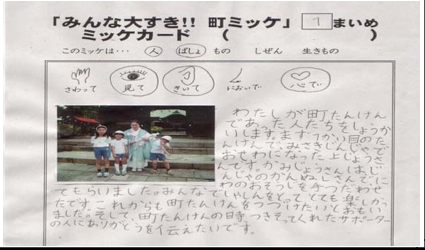 「みんな大すき!! 町ミッケ」 1 まいめ
ミッケカード ( )
このミッケは… 人 ばしょ もの しぜん 生きもの
さわって 見て きいて においで 心で
わたしが町たんけん
であった人たちをしょうか
いします。
おせわになった上じょうさ
んです。
てもらいました。みんなでしゃしんをとってとても楽しかっ
たです。これからも町たんけんをつづけたいとおもい
ました。そして、町たんけんの日時、つきそってくれたサポーター
の人にありがとうを伝えたいです。